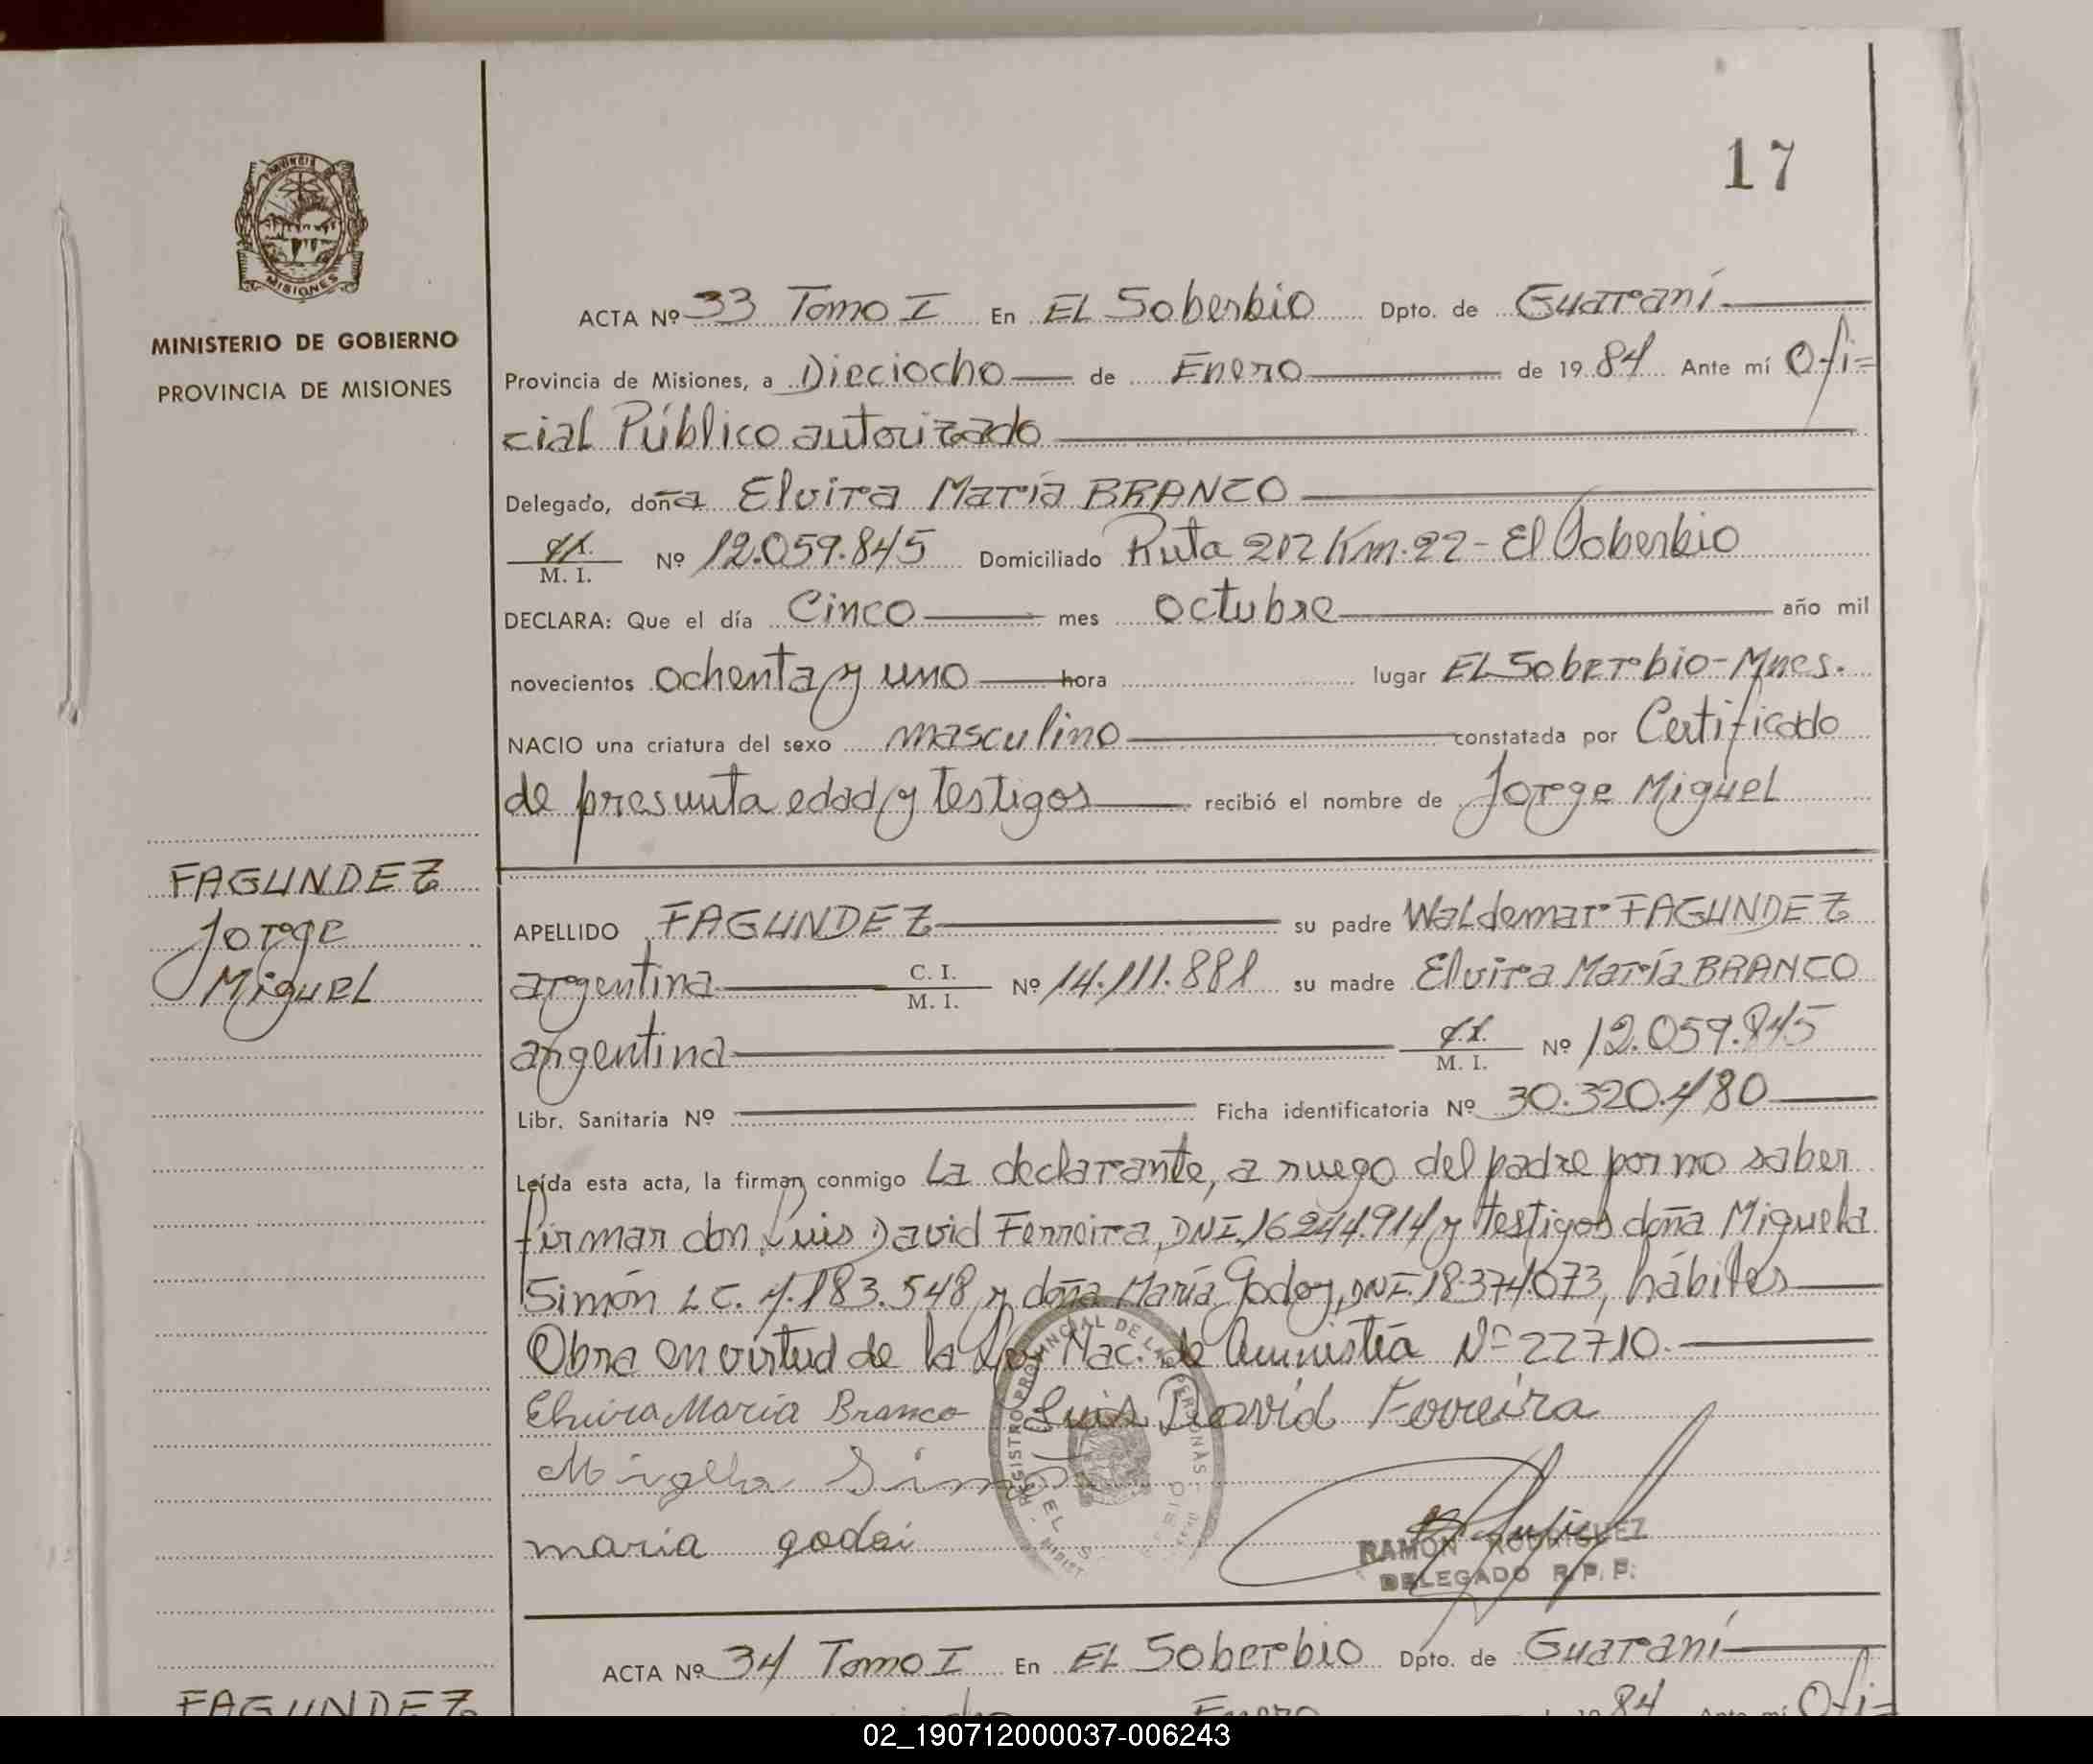 17
MINISTERIO DE GOBIERNO
PROVINCIA DE MISIONES
ACTA Nº 33 Tomo I En EL Soberbio Dpto. de Guaraní
Provincia de Misiones, a Dieciocho de Enero de 1984 Ante mí Ofi=
cial Público autorizado
Delegado, doña Elvira María BRANCO
C.I. M. I. Nº 12.059.845 Domiciliado Ruta 212 Km. 22 - El Soberbio
DECLARA: Que el día Cinco mes octubre año mil
novecientos ochenta y uno hora lugar EL Soberbio - Mnes.
NACIO una criatura del sexo masculino constatada por Certificado
de presunta edad y testigos recibió el nombre de Jorge Miguel
FAGUNDEZ
Jorge
Miguel
APELLIDO FAGUNDEZ su padre Waldemar FAGUNDEZ
argentina C. I. M. I. Nº 14.111.881 su madre Elvira María BRANCO
argentina C.I. M. I. Nº 12.059.845
Libr. Sanitaria Nº Ficha identificatoria Nº 30.320.480
Leída esta acta, la firman conmigo La declarante, a ruego del padre por no saber
firmar don Luis David Ferreira, DNI. 16.244.914 y testigos doña Miguela
Simón LC. 4.183.548 y doña María Godoy, DNI. 18.374.073, hábiles
Obra en virtud de la Ley Nac. de Amnistía Nº 22710.
Elvira María Branco Luis David Ferreira
maria godoi
REGISTRO PROVINCIAL DE LAS PERSONAS
RAMON RODRIGUEZ
DELEGADO R. P. P.
ACTA Nº 34 Tomo I En EL Soberbio Dpto. de Guaraní
FAGUNDEZ
Enero 1984 Ante mí Ofi=
02_190712000037-006243